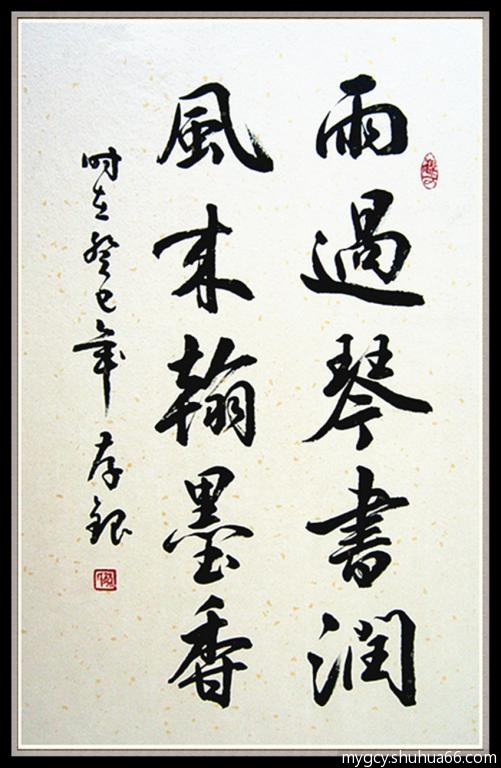 雨過琴書潤
風來翰墨香
时在癸巳年 存銀
mygcy.shuhua66.com